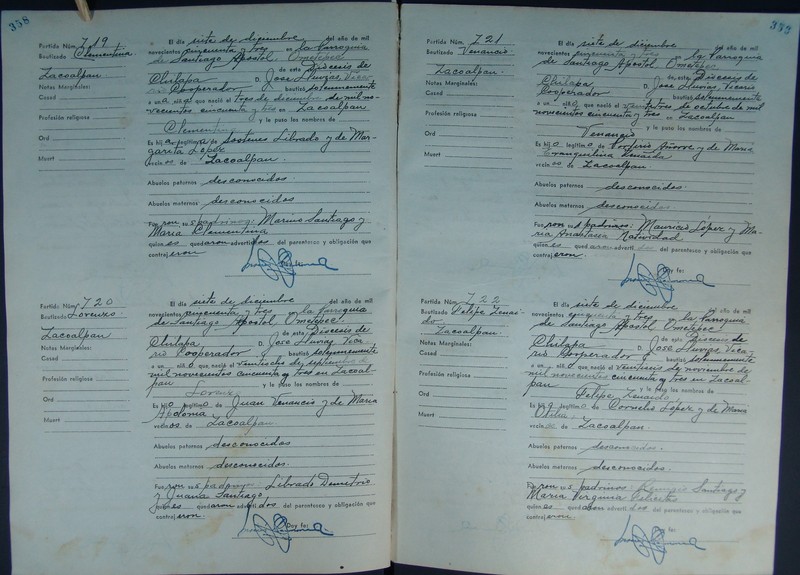 358
Partida Núm. 719
Bautizado Clementina.
Zacoalpan
Notas Marginales:
Casad
Profesión religiosa
Ord
Muert
El día siete de diciembre del año de mil
novecientos cincuenta y tres en la Parroquia
de Santiago Apostol Ometepec
de esta Diócesis de
Chilapa D. Jose
Cooperador bautizó solemnemente
a un a niña que nació el tres de diciembre de mil no-
vecientos cincuenta y tres en Zacoalpan
y le puso los nombres de
Clementina
Es hija legítima de Sostenes Librado y de Mar-
garita López
vecinos de Zacoalpan.
Abuelos paternos desconocidos
Abuelos maternos desconocidos
Fueron sus padrinos: Marino Santiago y
Maria Clementina
quienes quedaron advertidos del parentesco y obligación que
contrajeron.
Partida Núm. 720
Bautizado Lorenzo
Zacoalpan
Notas Marginales:
Casad
Profesión religiosa
Ord
Muert
El día siete de diciembre del año de mil
novecientos cincuenta y tres en la Parroquia
de Santiago Apostol Ometepec
de esta Diócesis de
Chilapa D. José
rio Cooperador bautizó solemnemente
a un niño que nació el de septiembre de
mil novecientos cincuenta y tres en Zacoal-
pan y le puso los nombres de
Es hijo legítimo de Juan Venancio y de Maria
Apolonia
vecinos de Zacoalpan
Abuelos paternos desconocidos
Abuelos maternos desconocidos.
Fueron sus padrinos Librado Demetrio
y Juana Santiago
quienes quedaron advertidos del parentesco y obligación que
contrajeron.
Doy fe:
359
Partida Núm. 721
Bautizado Venancio
Zacoalpan
Notas Marginales:
Casad
Profesión religiosa
Ord
Muert
El día siete de diciembre del año de mil
novecientos cincuenta y tres en la Parroquia
de Santiago Apostol Ometepec
de esta Diócesis de
Chilapa D. Jose Vicario
Cooperador bautizó solemnemente
a un niño que nació el de octubre de mil
novecientos cincuenta y tres en Zacoalpan
y le puso los nombres de
Venancio
Es hijo legítimo de Porfirio Añorve y de Maria
vecinos de Zacoalpan.
Abuelos paternos desconocidos.
Abuelos maternos desconocidos
Fueron sus padrinos: Mauricio López y Ma-
ria Anastacia Natividad
quienes quedaron advertidos del parentesco y obligación que
contrajeron.
Doy fe:
Partida Núm. 722
Bautizado Felipe Zenai-
do
Zacoalpan.
Notas Marginales:
Casad
Profesión religiosa
Ord
Muert
El día siete de diciembre del año de mil
novecientos cincuenta y tres en la Parroquia
de Santiago Apostol Ometepec
de esta Diócesis de
Chilapa D. José Vica-
rio Cooperador y bautizó solemnemente
a un niño que nació el de noviembre de
mil novecientos cincuenta y tres en Zacoal-
pan y le puso los nombres de
Felipe Zenaido
Es hijo legítimo de Cornelio López y de Maria
vecinos de Zacoalpan.
Abuelos paternos desconocidos.
Abuelos maternos desconocidos.
Fueron sus padrinos Santiago y
Maria Virginia
quienes quedaron advertidos del parentesco y obligación que
contrajeron.
Doy fe: